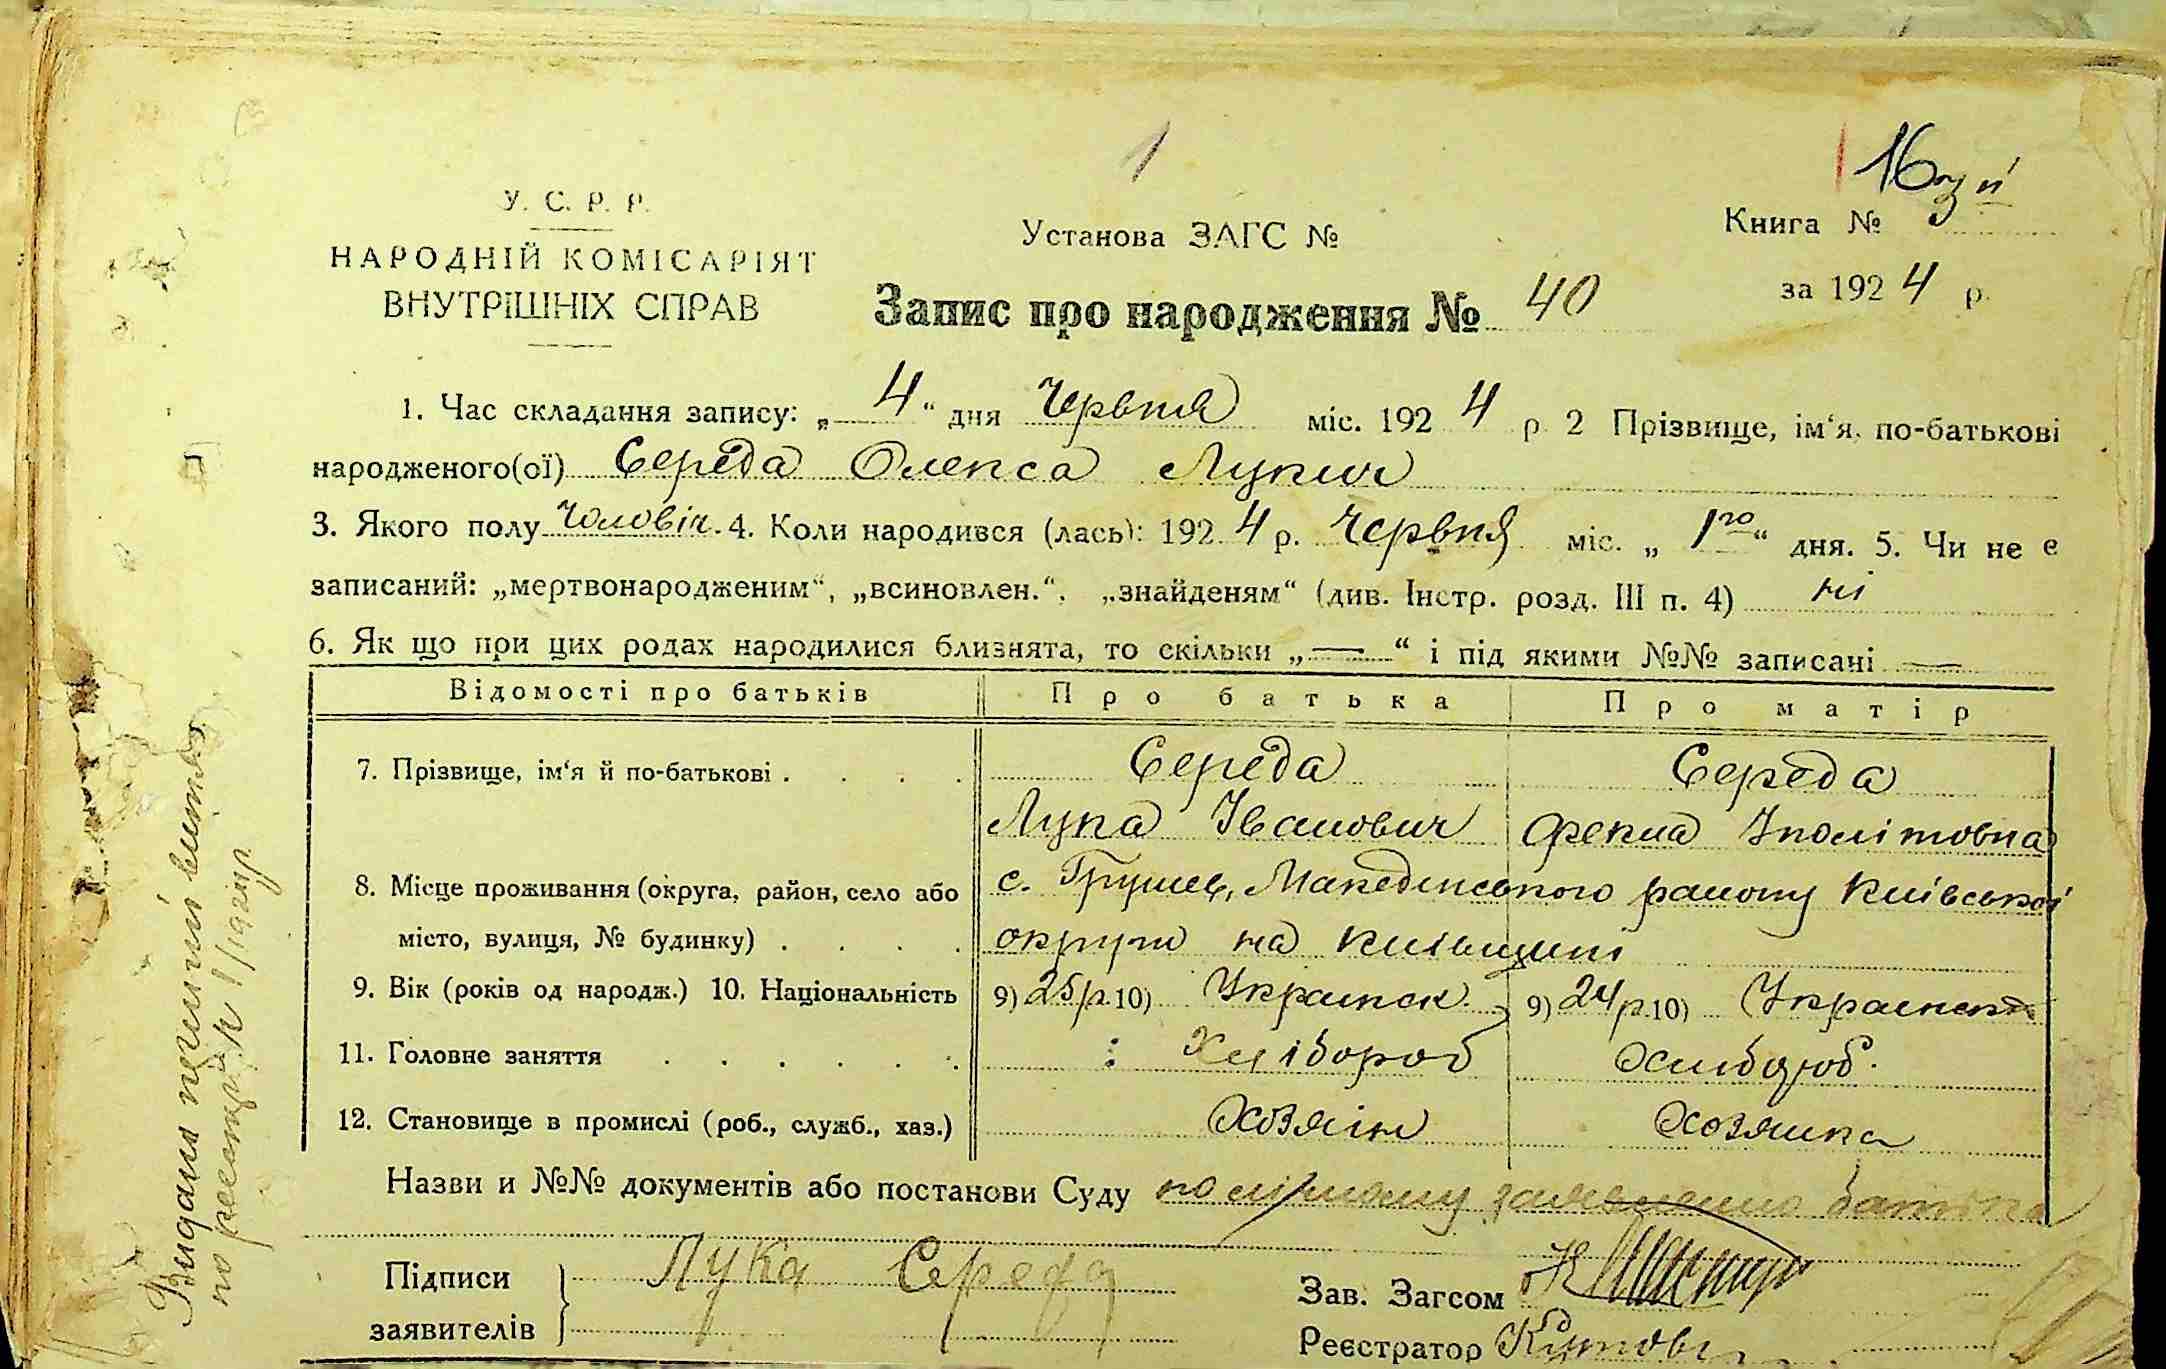 1
16
У. С. Р. Р.
НАРОДНІЙ КОМІСАРІЯТ
ВНУТРІШНІХ СПРАВ
Установа ЗАГС №
Книга №
за 1924 р.
Запис про народження № 40
1. Час складання запису: „4“ дня Червня міс. 1924 р 2 Прізвище, ім‘я, по-батькові
народженого(ої) Середа Олекса Лукич
3. Якого полу Чоловіч. 4. Коли народився (лась): 1924 р. Червня міс. „1го“ дня. 5. Чи не є
записаний: „мертвонародженим“, „всиновлен.“, „знайденям“ (див. Інстр. розд. III п. 4) ні
6. Як що при цих родах народилися близнята, то скільки „—“ і під якими №№ записані —
Відомості про батьків Про батька Про матір
7. Прізвище, ім‘я й по-батькові . . . . Середа Середа
Лука Іванович Фекла Іполітовна
8. Місце проживання (округа, район, село або с. Грушев, Македонського району Київської
місто, вулиця, № будинку) . . . . округи на Київщині
9. Вік (років од народж.) 10. Національність 9) 25 р. 10) Українск. 9) 24 р. 10) Українска
11. Головне заняття . . . . . . Хлібороб Хлибороб.
12. Становище в промислі (роб., служб., хаз.) Хозяін Хозяйка
Назви и №№ документів або постанови Суду по заявлению батька
Підписи Лука Середа
заявителів
Зав. Загсом
Реєстратор
Видана
по реестру № 1/1924 р